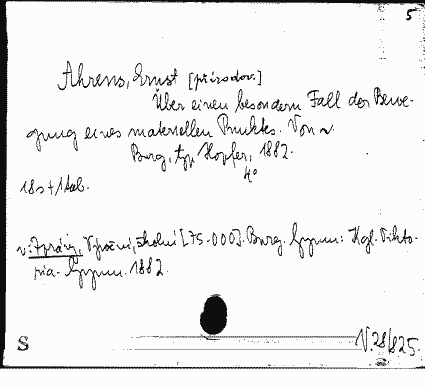 5
Ahrens, Ernst [přírodov.]
Über einen besondern Fall der Bewe-
gung eines materiellen Punktes. Von ~.
Burg, typ. Hopfer, 1882.
4°
18 s + 1 tab.
v: Zprávy, Výroční, školní [75-000]. Burg. Gymn: Kgl. Vikto-
ria-Gymn. 1882.
S
V.28/825.